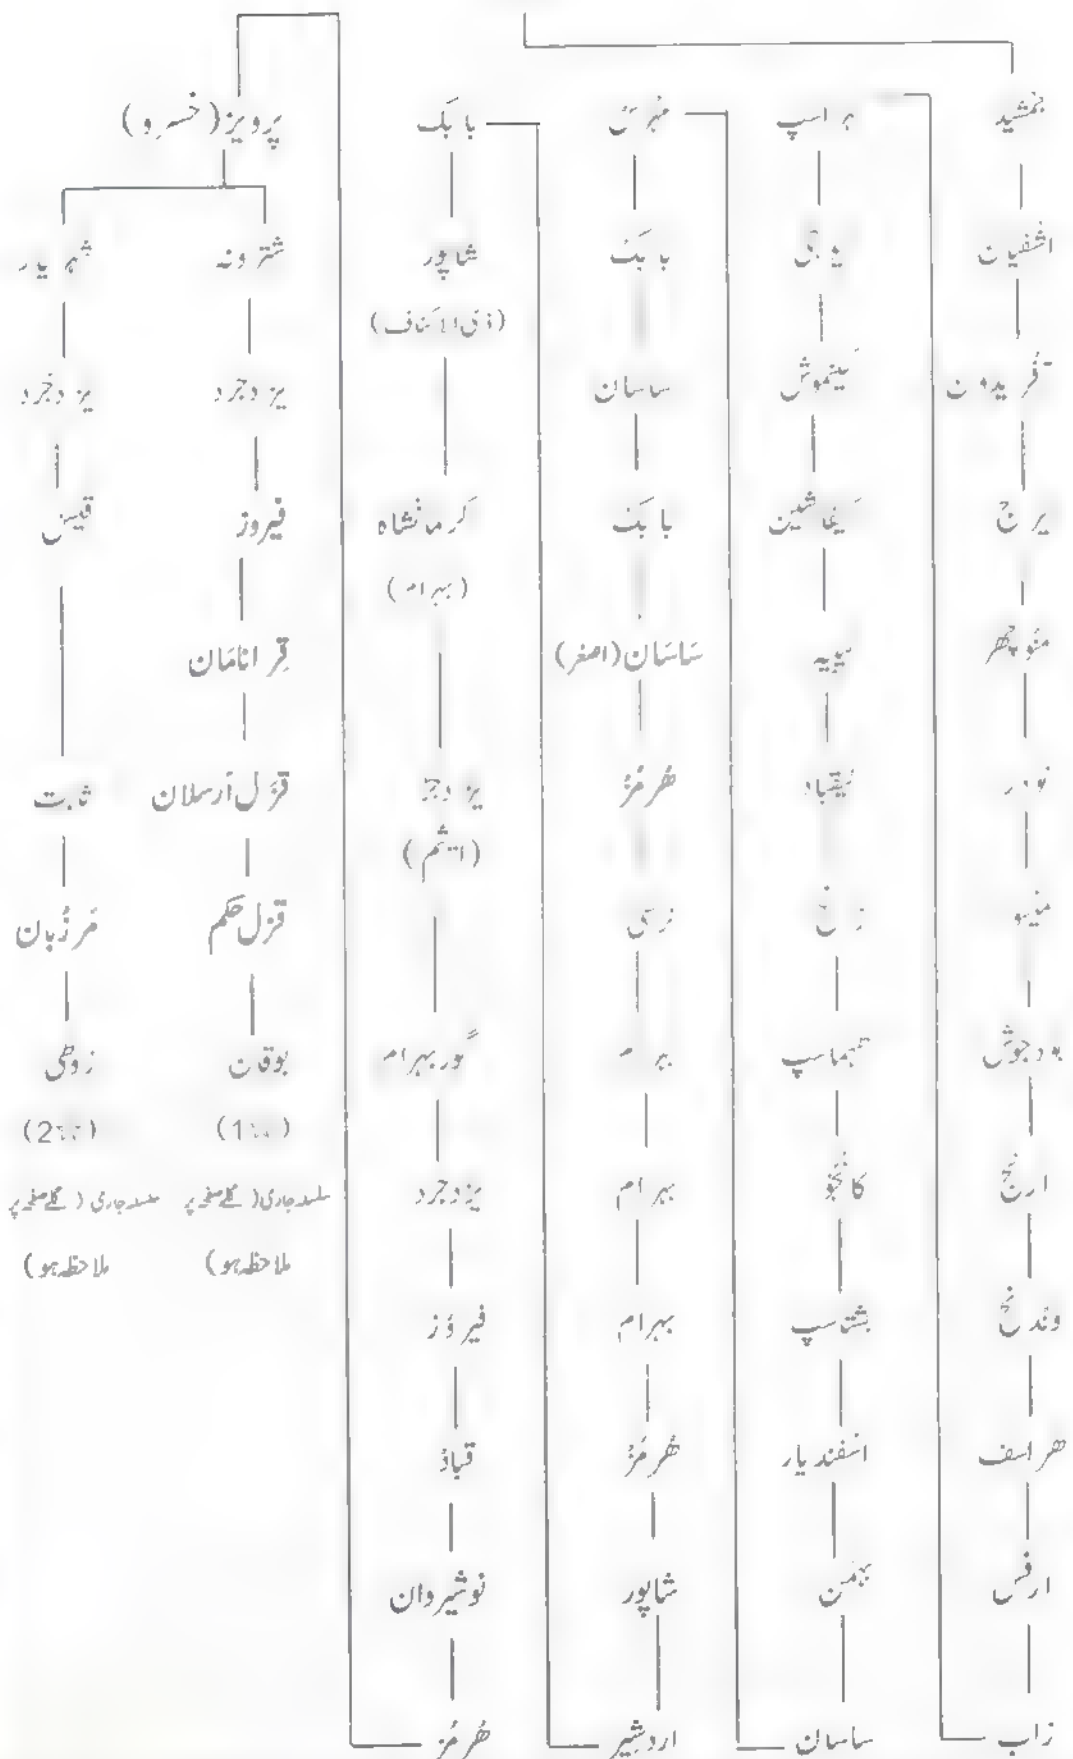 جمشید
اشفیان
فریدون
یرج
منوچھر
نودر
منیو
بودجوش
ارنج
وندنج
ھراسف
ارفس
زاب
براسپ
کینموش
کیفاشین
سیبیہ
کیقباد
زاغ
طہماسپ
کانجو
بشتاسپ
اسفندیار
بہمن
ساسان
مہرس
بابک
ساسان
بابک
سَاسَان (اصغر)
ھُرمُز
نرسی
بہرام
بہرام
بہرام
ھُرمُز
شاپور
اردشیر
بابک
شاپور
(ذی الاکتاف)
کرمانشاہ
(بہرام)
یزدجرُ
(ایثم)
گوربہرام
یزدجرد
فیروَز
قباذ
نوشیروان
ھُرمُز
پرویز (خسرو)
شتر ونہ
یزدجرد
فیروز
قِرانامَان
قَزل اَرسلان
قزل حکم
بوقان
(شاخ1)
سلسلہ جاری (اگلے صفحہ پر
ملاحظہ ہو)
شہریار
یزدجُرد
قیس
ثابت
مَرزُبان
زوطی
(شاخ2)
سلسلہ جاری (اگلے صفحہ پر
ملاحظہ ہو)